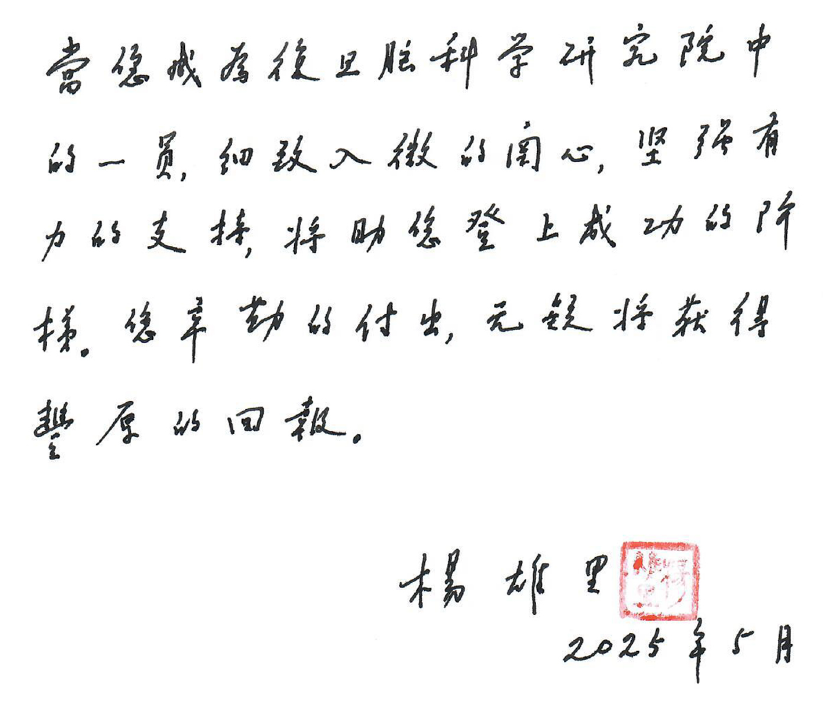 當您成為復旦脑科学研究院中
的一員,细致入微的関心,坚强有
力的支持,将助您登上成功的阶
梯。您辛勤的付出,无疑将获得
豐厚的回報。
楊雄里
2025年5月